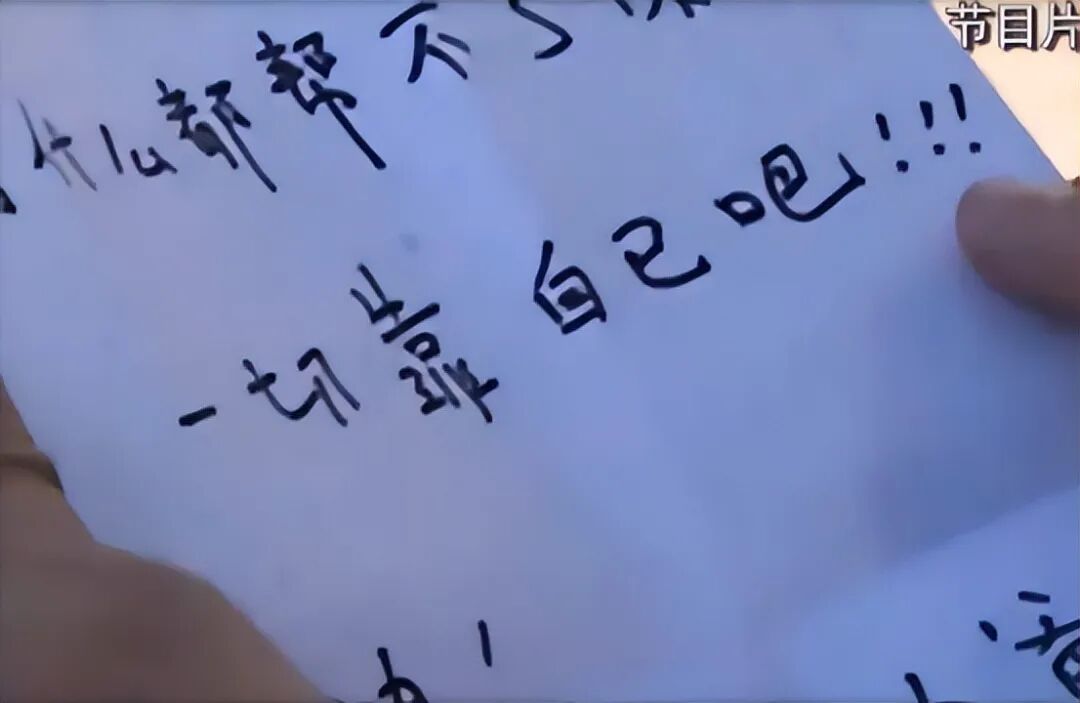 节目片
什么都帮不了
一切靠自己吧!!!